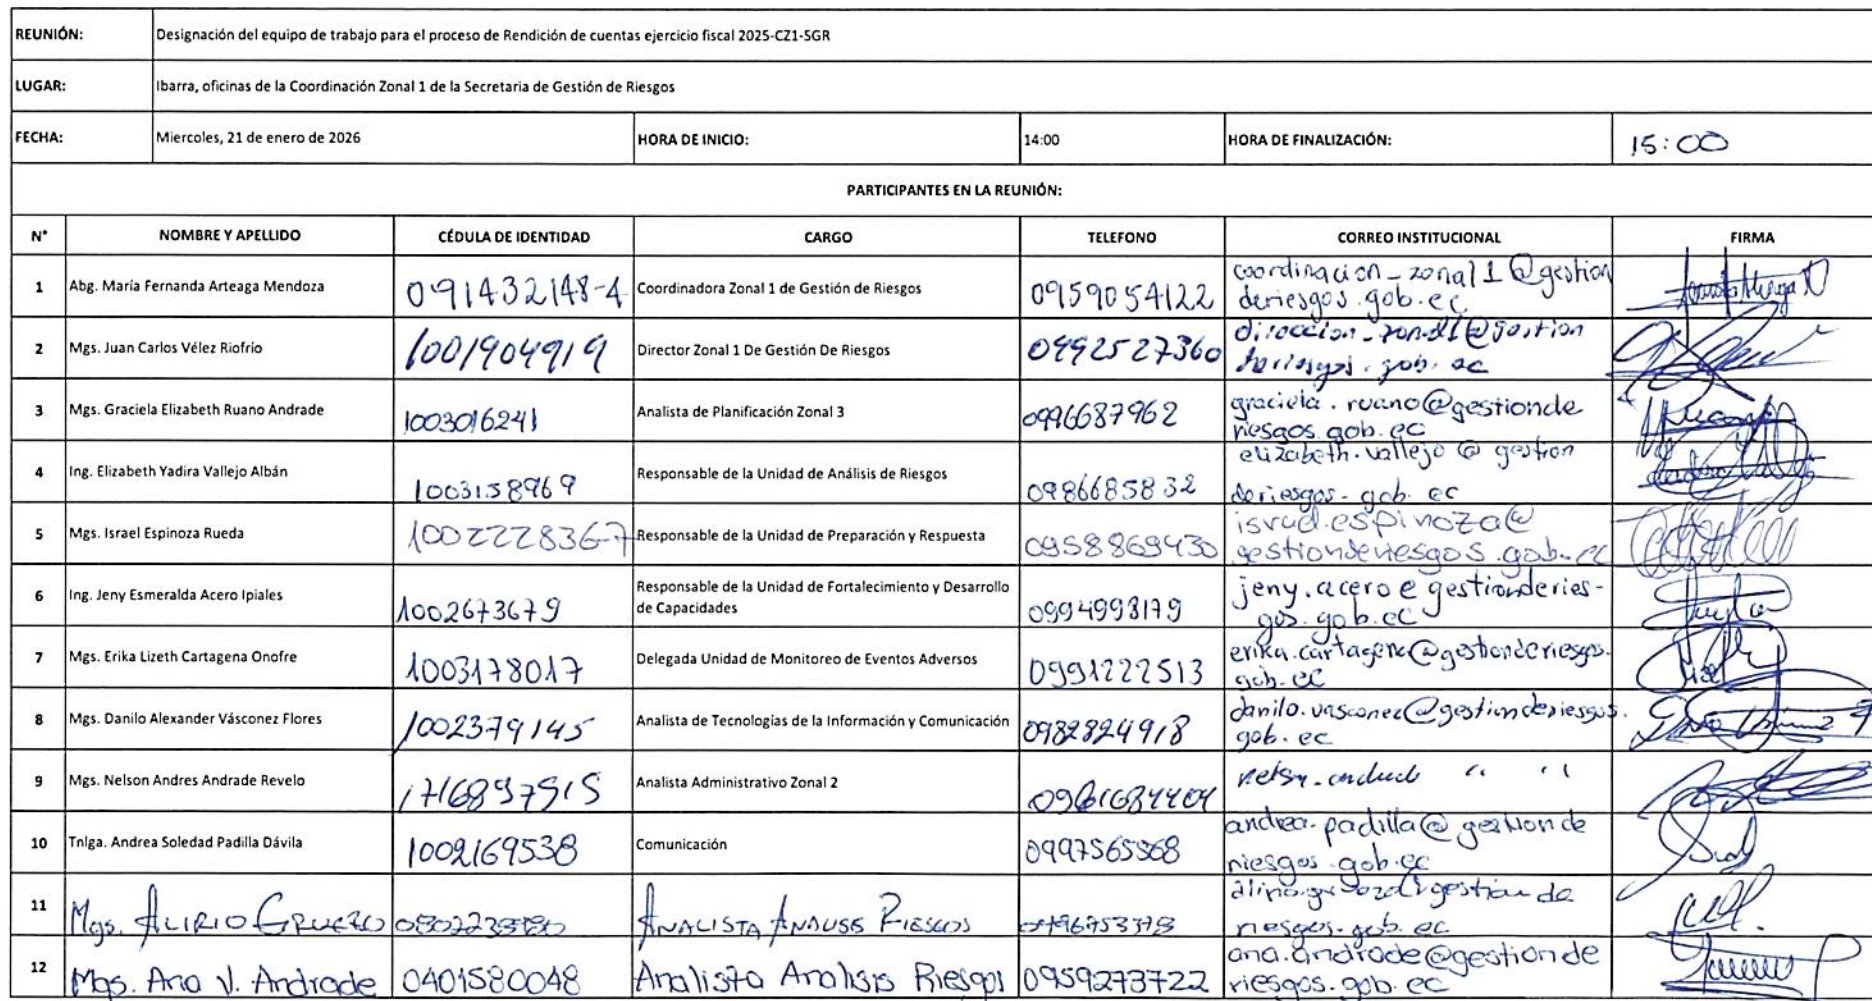 REUNIÓN: Designación del equipo de trabajo para el proceso de Rendición de cuentas ejercicio fiscal 2025-CZ1-SGR
LUGAR: Ibarra, oficinas de la Coordinación Zonal 1 de la Secretaria de Gestión de Riesgos
FECHA: Miercoles, 21 de enero de 2026 HORA DE INICIO: 14:00 HORA DE FINALIZACIÓN: 15:00
PARTICIPANTES EN LA REUNIÓN:
N° NOMBRE Y APELLIDO CÉDULA DE IDENTIDAD CARGO TELEFONO CORREO INSTITUCIONAL FIRMA
1 Abg. María Fernanda Arteaga Mendoza 091432148-4 Coordinadora Zonal 1 de Gestión de Riesgos 0959054122 coordinacion_zonal1@gestion
deriesgos.gob.ec
2 Mgs. Juan Carlos Vélez Riofrio 1001904919 Director Zonal 1 De Gestión De Riesgos 0992527360 direccion_zonal1@gestion
deriesgos.gob.ec
3 Mgs. Graciela Elizabeth Ruano Andrade 1003016241 Analista de Planificación Zonal 3 0996687962 graciela.ruano@gestionde
riesgos.gob.ec
4 Ing. Elizabeth Yadira Vallejo Albán 1003158969 Responsable de la Unidad de Análisis de Riesgos 0986685832 elizabeth.vallejo@gestion
deriesgos.gob.ec
5 Mgs. Israel Espinoza Rueda 100222836-7 Responsable de la Unidad de Preparación y Respuesta 0958869430 israel.espinoza@
gestionderiesgos.gob.ec
6 Ing. Jeny Esmeralda Acero Ipiales 1002673679 Responsable de la Unidad de Fortalecimiento y Desarrollo
de Capacidades 0994998179 jeny.acero e gestionderies-
gos.gob.ec
7 Mgs. Erika Lizeth Cartagena Onofre 1003178017 Delegada Unidad de Monitoreo de Eventos Adversos 0991222513 erika.cartagena@gestionderiesgos.
gob.ec
8 Mgs. Danilo Alexander Vásconez Flores 1002379145 Analista de Tecnologías de la Información y Comunicación 0982824918 danilo.vasconez@gestionderiesgos.
gob.ec
9 Mgs. Nelson Andres Andrade Revelo 1716897915 Analista Administrativo Zonal 2 " "
10 Tnlga. Andrea Soledad Padilla Dávila 1002169538 Comunicación 0997565568 andrea.padilla@gestionde
riesgos.gob.ec
11 Mgs. ALIRIO GRUEZO ANALISTA ANALISIS RIESGOS gestion de
riesgos.gob.ec
12 Mgs. Ana V. Andrade 0401580048 Analista Analisis Riesgos 0959273722 ana.andrade@gestionde
riesgos.gob.ec